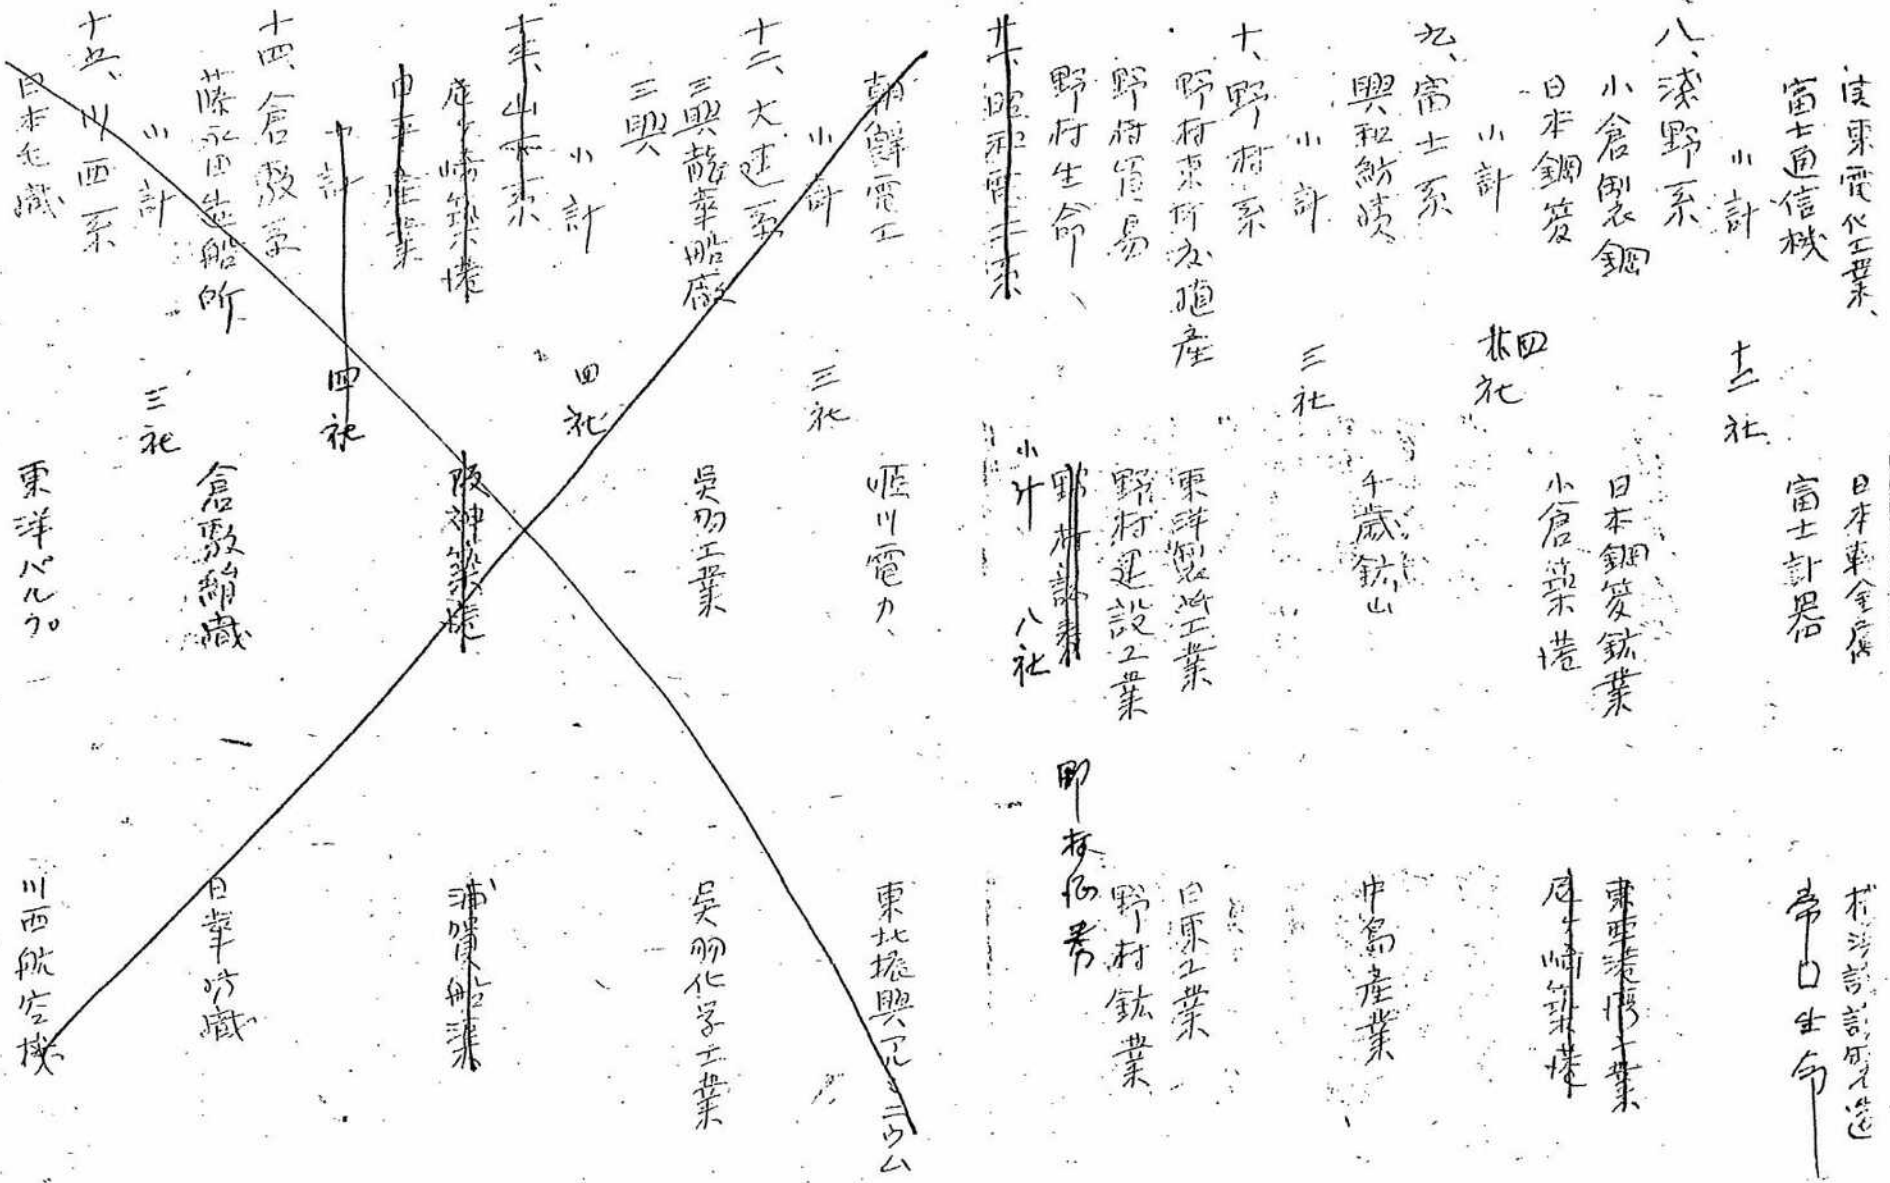 関東電化工業、 日本軽金属
富士通信機 富士計器 帝国生命
小計 十二社
八、浅野系
小倉製鋼 日本鋼管鉱業 東亜港湾工業
日本鋼管 小倉築港 尼ヶ崎築港
小計 四社
九、富士系
興和紡績 千歳鉱山 中島産業
小計 三社
十、野村系
野村東印度殖産 東洋製油工業 日東工業
野村貿易 野村建設工業 野村鉱業
野村生命、 野村証券
小計 八社
十一、昭和電工系
朝鮮電工 東北振興アルミニウム
小計 三社
十二、大建系
三興龍華船廠 呉羽工業 呉羽化学工業
三興
小計 四社
十三、山下系
尼ヶ崎築港 阪神築港 浦賀船渠
小計 四社
十四、倉敷系
藤永田造船所 倉敷絹織 日華紡織
小計 三社
十五、川西系
日本毛織 東洋パルプ 川西航空機